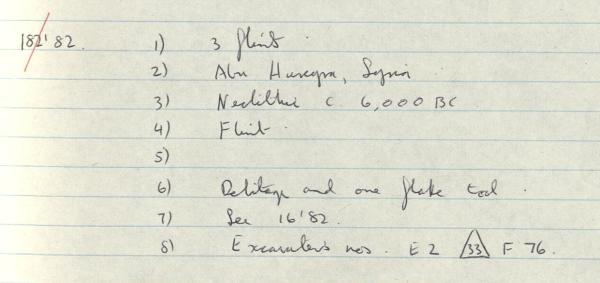 182'82. 1) 3 flints.
2) Abu Hureyra, Syria
3) Neolithic c. 6,000 BC
4) Flint.
5)
6) Debitage and one flake tool.
7) See 16'82.
8) Excavators nos. E2 33 F 76.